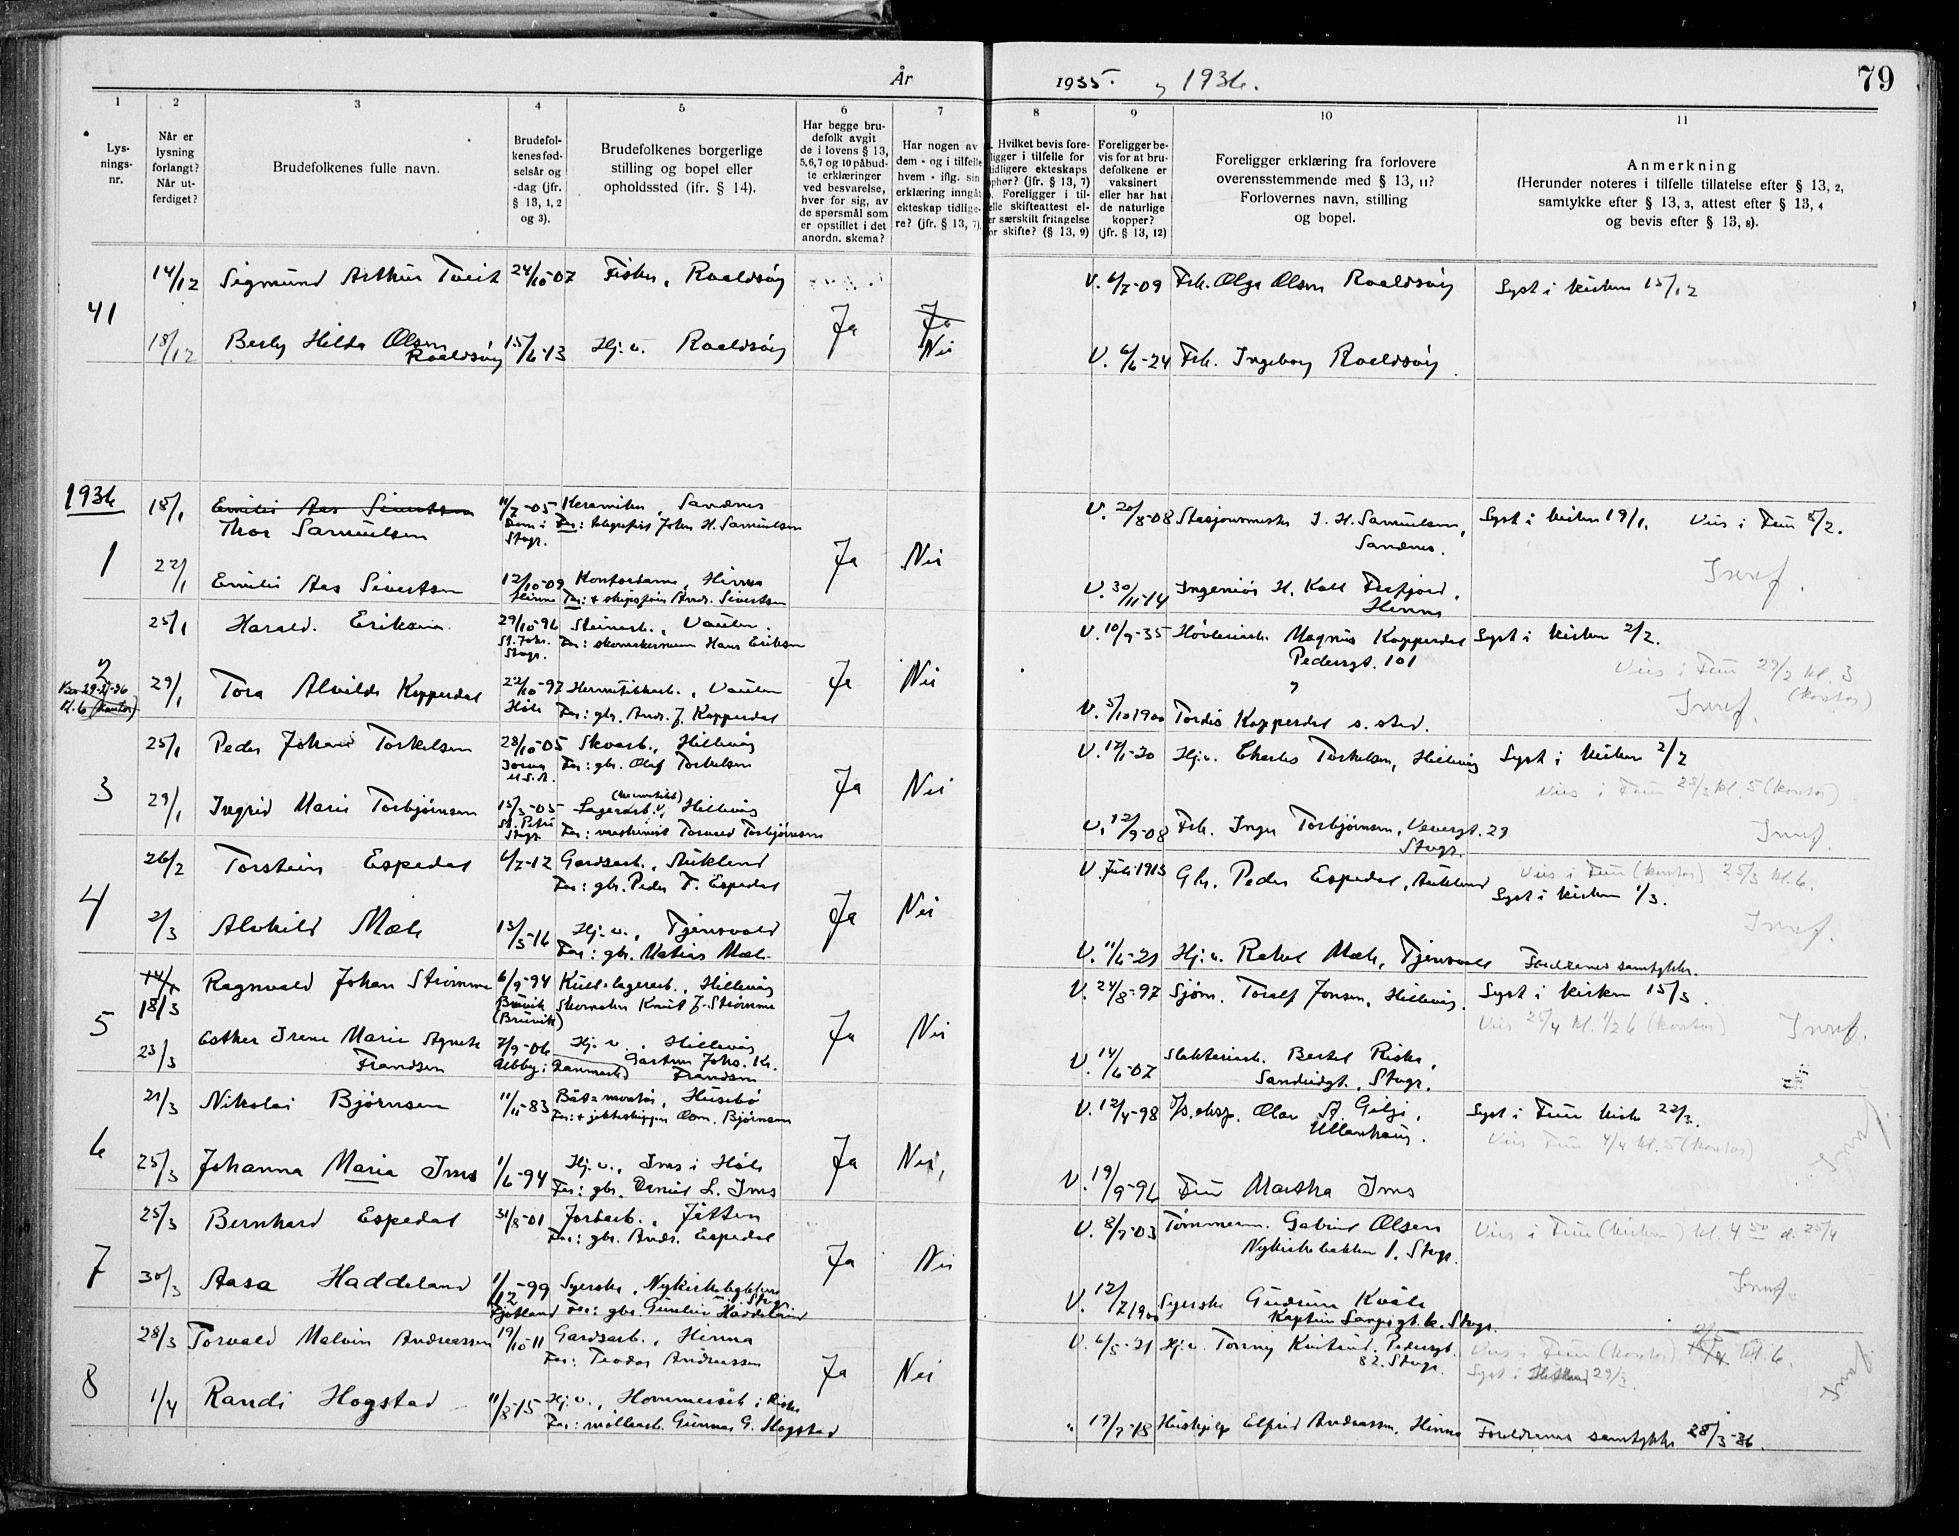 År 1935. og 1936.
79
1 2 3 4 5 6 7 8 9 10 11
Lys-
nings-
nr.
Når er
lysning
forlangt?
Når ut-
ferdiget?
Brudefolkenes fulle navn.
Brudefol-
kenes fød-
selsår og
-dag (jfr.
§ 13, 1, 2
og 3).
Brudefolkenes borgerlige
stilling og bopel eller
opholdssted (ifr. § 14).
Har begge bru-
defolk avgit
de i lovens § 13,
5,6,7 og 10 påbud-
te erklæringer
ved besvarelse,
hver for sig, av
de spørsmål som
er opstillet i det
anordn. skema?
Har nogen av
dem - og i tilfelle
hvem - iflg. sin
erklæring inngåt
ekteskap tidlige-
re? (jfr. § 13, 7).
Hvilket bevis fore-
ligger i tilfelle for
tidligere ekteskaps
ophør? (jfr. § 13, 7)
Foreligger i til-
felle skifteattest el-
er særskilt fritagelse
for skifte? (§ 13, 9)
Foreligger be-
vis for at bru-
defolkene er
vaksinert
eller har hat
de naturlige
kopper?
(jfr. § 13, 12)
Foreligger erklæring fra forlovere
overensstemmende med § 13, 11?
Forlovernes navn, stilling
og bopel.
Anmerkning
(Herunder noteres i tilfelle tillatelse efter § 13, 2,
samtykke efter § 13, 3, attest efter § 13, 4
og bevis efter § 13, 8).
14/12 Sigmund Arthur Tveit 24/10-07 Fisker, Roaldsøy V. 6/7-09 Frk. Olga Olsen Roaldsøy Lyst i kirken 15/12
41 Ja Ja
18/12 Berly Hilda Olsen 15/6-13 Hj.v. Roaldsøy Nei V. 6/6-24 Frk. Ingeborg Roaldsøy.
Roaldsøy
1936
18/1 Emilie Aas Sivertsen 11/7-05 Keramiker, Sandnes V. 20/8-08 Stasjonsmester J. H. Samuelsen, Lyst i kirken 19/1. Viet i Frue 8/2.
Thor Samuelsen Dom i Stvgr. Far: telegrafist John H. Samuelsen Sandnes.
1 Ja Nei Innf.
22/1 Emilie Aas Sivertsen 12/10-09 Kontordame, Hinna V. 30/11-14 Ingeniør H. Kall Tresfjord,
Hinna Far: + skipsfører Andr. Sivertsen Hinna
25/1 Harald Eriksen 29/10-96 Steinarb., Vaulen. V. 10/9-35 Høvleriarb. Magnus Kopperdal Lyst i kirken 2/2.
St. Joh. Stvgr. Far: skomakersvenn Hans Eriksen Pedersgt. 101
2 Ja Nei Viet i Frue 29/2 kl. 3 (kontor)
kl. 6 (kontor) 29/1 Tora Alvilde Kopperdal 22/10-97 Hermetikkarb., Vaulen Innf.
Høle Far: gbr. Andr. J. Kopperdal V. 5/10 1900 Tordis Kopperdal s. sted.
25/1 Peder Johan Torkelsen 28/10-05 Skoarb., Hillevåg V. 12/1-20 Hj.v. Charles Torkelsen, Hillevåg Lyst i kirken 2/2
U.S.A. Far: gbr. Olaf Torkelsen
3 Ja Nei kl. 5 (kontor)
29/1 Ingrid Marie Torbjørnsen 15/3-05 Lagerarb., Hillevåg V. 12/9-08 Frk. Inger Torbjørnsen, Vevergt. 29 Innf.
St. Petri Stvgr. Far: maskinist Torvald Torbjørnsen Stvgr.
26/2 Torstein Espedal 6/7-12 Gardsarb., Aukland V. Juli 1913 Gbr. Peder Espedal, Aukland Viet i Frue (kontor) 25/3 kl. 6.
Far: gbr. Peder T. Espedal Lyst i kirken 1/3.
4 Ja Nei
2/3 Alvhild Mæle 13/5-16 Hj.v., Tjensvold Innf.
Far: gbr. Matias Mæle V. 11/6-21 Hj.v. Rakel Mæle, Tjensvold Foreldrenes samtykke.
18/3 Ragnvald Johan Strømme 6/9-94 Kull-lagerarb., Hillevåg V. 24/8-97 Sjøm. Toralf Jonsen, Hillevåg. Lyst i kirken 15/3.
Bruvik (Bruvik) Skomaker Knut J. Strømme Viet 25/4 kl. 1/2 6 (kontor) Innf.
5 Ja Nei
23/3 Esther Irene Marie Agnete 7/9-06 Hj.v., Hillevåg V. 14/6-07 Slakteriarb. Bertel Riska,
Frandsen Danmark Gartner Johs. Kr. Frandsen Sandvidgt., Stvgr.
21/3 Nikolai Bjørnsen 11/11-83 Båtmontør, Husebø V. 12/4-98 Olav A. Gilje, Lyst i Frue kirke 22/3.
Far: + jekteskipper Bjørnsen Ullenhaug. Viet Frue 4/4 kl. 5 (kontor)
6 Ja Nei Innf
25/3 Johanna Maria Ims 1/6-94 Hj.v., Ims i Høle V. 19/9-96 Fru Martha Ims
Far: gbr. Daniel L. Ims
25/3 Bernhard Espedal 31/8-01 Jordarb., Jåtten V. 8/7-03 Tømmerm. Gabriel Olsen Viet i Frue (kirken) kl. 4 50 d. 25/4
Far: gbr. Andr. Espedal Nykirkebakken 1, Stvgr.
7 Ja Nei Innf.
30/3 Aasa Haddeland 1/12-99 Syerske, Nykirkebakken V. 12/7 1900 Syerske Gudrun Kvåle
Fjotland Far: gbr. Haddeland Kaptein Langesgt. 6. Stvgr.
28/3 Torvald Malvin Andreassen 19/10-11 Gardsarb., Hinna V. 6/5-21 Hj.v. Tonny Pedersgt. 82. Stvgr. Viet i Frue (kontor) kl. 6.
Far: Teodor Andreassen Lyst i 29/3.
8 Ja Nei Innf
1/4 Randi Hogstad 11/8-15 Hj.v., Hommersåk i Riska " 17/7-18 Hushjelp Elfrid Andreassen, Hinna Foreldrenes samtykke 28/3-36.
Far: møllearb. Gunnar G. Hogstad